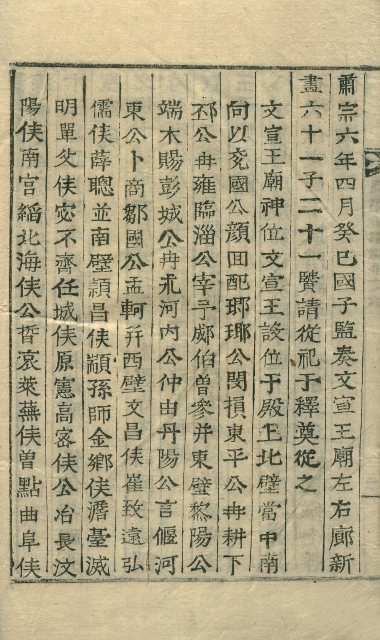 肅宗六年四月癸巳國子監奏文宣王廟左右廊新
畫六十一子二十一贒請從祀于釋奠從之
文宣王廟神位文宣王設位于殿上北壁當中南
向以兖國公顔回配瑯瑘公閔損東平公冉耕下
邳公冉雍臨淄公宰予郕伯曾參并東壁黎陽公
端木賜彭城公冉求河内公仲由丹陽公言偃河
東公卜商鄒國公孟軻并西壁文昌侯崔致遠弘
儒侯薛聰並南壁頴昌侯顓孫師金鄉侯澹臺滅
明單父侯宓不齊任城侯原憲高密侯公冶長汶
陽侯南宫縚北海侯公晳哀萊蕪侯曾點曲阜侯